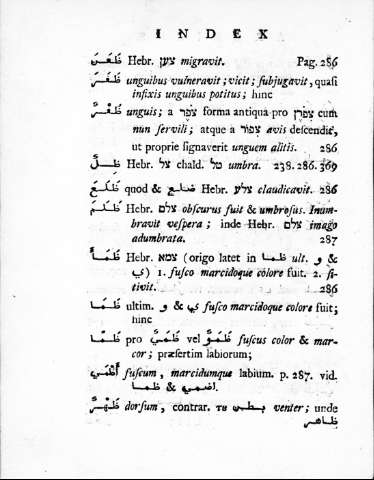 INDEX
ظَعَنَ Hebr. צען migravit. Pag. 286
ظَفَرَ unguibus vulneravit; vicit; subjugavit, quasi
infixis unguibus potitus; hinc
ظُفْرٌ unguis; a צפר forma antiqua pro צפרן cum
nun servili; atque a צפור avis descendit,
ut proprie signaverit unguem alitis. 286
ظِلٌّ Hebr. צל chald. טל umbra. 238. 286. 369
ظَلَعَ quod & ضلع Hebr. צלע claudicavit. 286
ظَلَمَ Hebr. צלם obscurus fuit & umbrosus. Inum-
bravit vespera; inde Hebr. צלם imago
adumbrata. 287
ظَمَأَ Hebr. צמא (origo latet in ظما ult. و &
ي) 1. fusco marcidoque colore fuit. 2. si-
tivit. 286
ظَمَا ultim. و & ي fusco marcidoque colore fuit;
hinc
ظَمًا pro ظَمَيٌ vel ظَمَوٌ fuscus color & mar-
cor; præsertim labiorum;
أَظْمَي fuscum, marcidumque labium. p. 287. vid.
ظما & اضمي.
ظَهْرٌ dorsum, contrar. τῳ بطن venter; unde
ظاهر